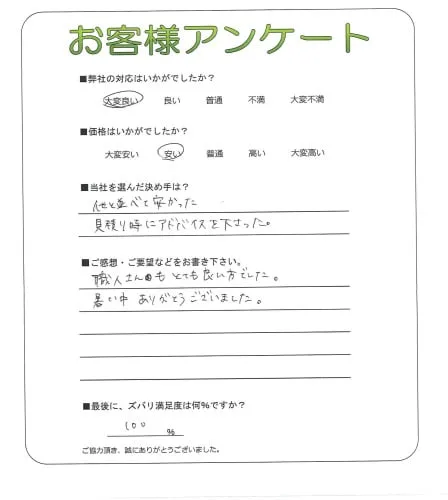 お客様アンケート
■弊社の対応はいかがでしたか?
大変良い 良い 普通 不満 大変不満
■価格はいかがでしたか?
大変安い 安い 普通 高い 大変高い
■当社を選んだ決め手は?
他と並べて安かった
見積り時にアドバイスを下さった。
■ご感想・ご要望などをお書き下さい。
職人さんもとても良い方でした。
暑い中 ありがとうございました。
■最後に、ズバリ満足度は何%ですか?
100 %
ご協力頂き、誠にありがとうございました。